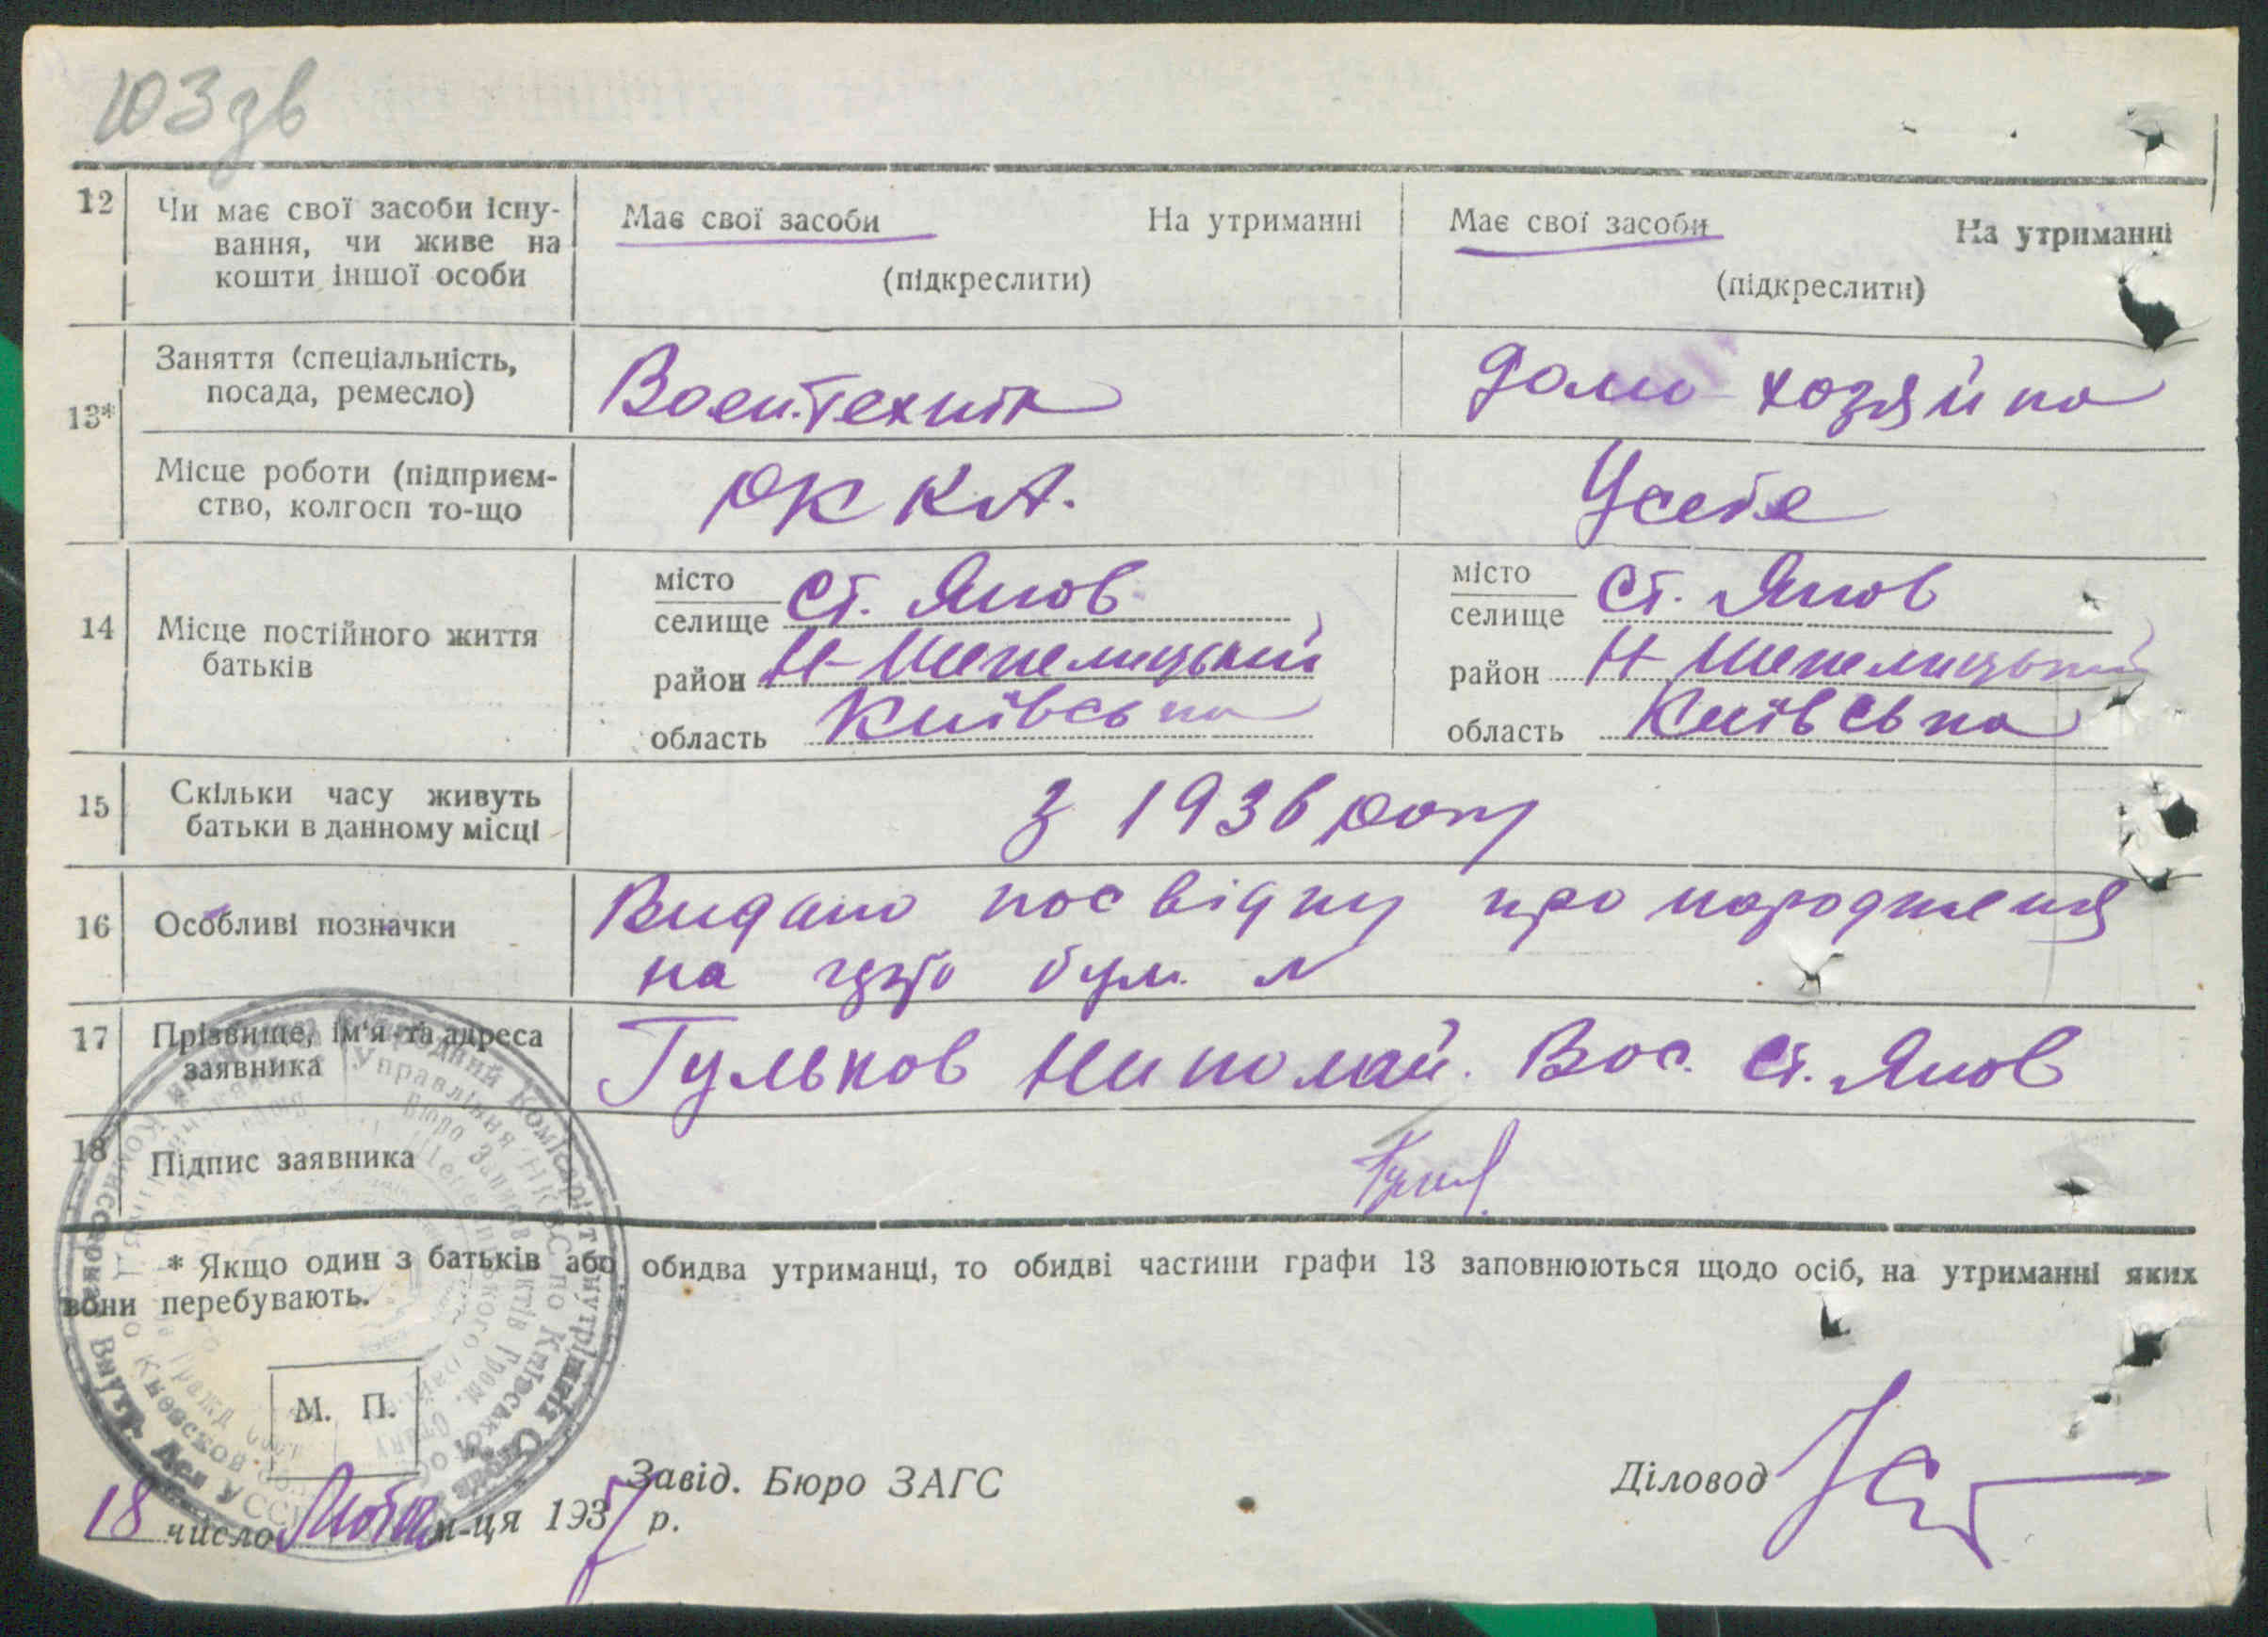 103 зв
12 Чи має свої засоби існу-
вання, чи живе на
кошти іншої особи
Має свої засоби На утриманні
(підкреслити)
Має свої засоби На утриманні
(підкреслити)
13*
Заняття (спеціальність,
посада, ремесло)
Воентехнік
Домо хозяйка
Місце роботи (підприєм-
ство, колгосп то-що
РККА.
У себе
14 Місце постійного життя
батьків
місто
селище ст. Янов
район Н-Шепелицький
область Київська
місто
селище ст. Янов
район Н-Шепелицький
область Київська
15 Скільки часу живуть
батьки в данному місці
З 1936 року
16 Особливі позначки
Видано посвідку про народження
на
17 Прізвище, ім'я та адреса
заявника
Гульков Николай. Вос. ст. Янов
18 Підпис заявника
* Якщо один з батьків або обидва утриманці, то обидві частини графи 13 заповнюються щодо осіб, на утриманні яких
вони перебувають.
М. П.
Завід. Бюро ЗАГС
Діловод
18 число Лютого м-ця 1937 р.
Народний Комісаріат Внутрішніх Справ
Управління НКВС по Київській
Бюро Записів Актів Гром.